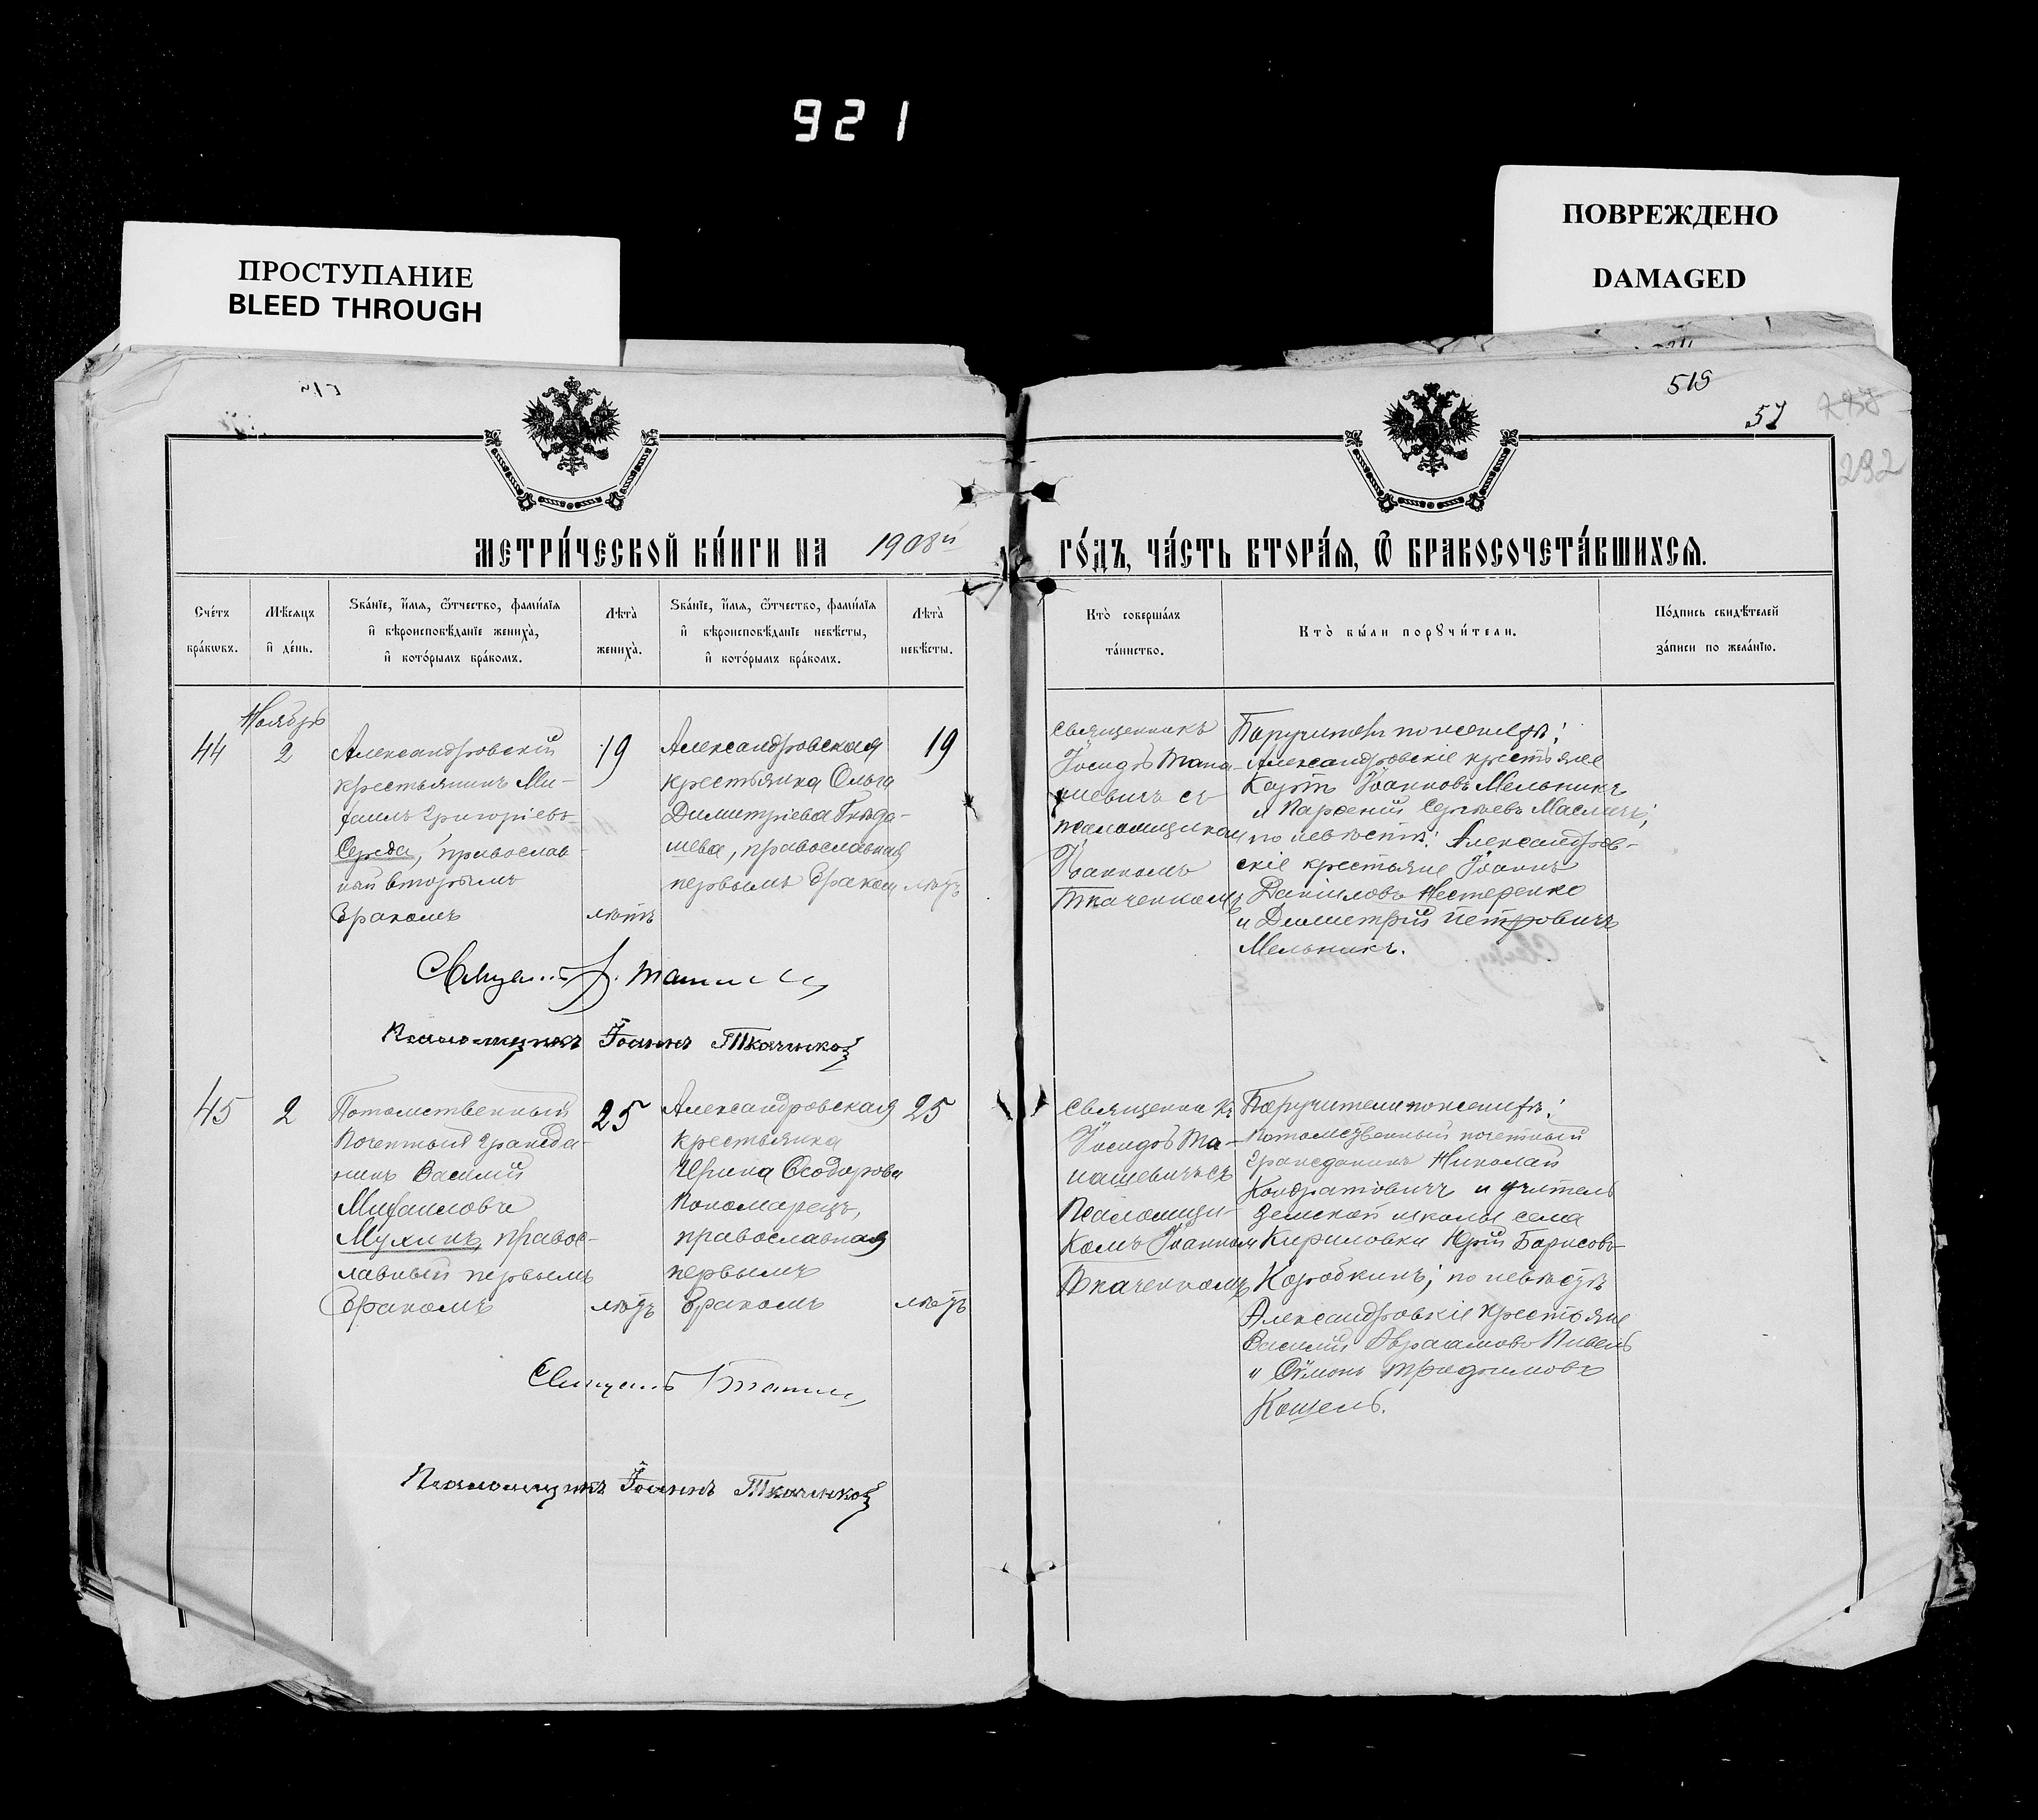 921
ПРОСТУПАНИЕ
BLEED THROUGH
ПОВРЕЖДЕНО
DAMAGED
519
57
292
МЕТРИ́ЧЕСКОЙ КНИ́ГИ НА 1908й
ГО́ДЪ, ЧА́СТЬ ВТОРА́Ѧ, Ѿ БРАКОСОЧЕТА́ВШИХСѦ.
Сче́тъ
бра́кѡвъ.
Мѣ́сѧцъ
и҆ де́нь.
Ѕва́нїе, и҆́мѧ, ѻ҆́тчество, фами́лїѧ
и҆ вѣроисповѣ́данїе жениха̀,
и҆ кото́рымъ бра́комъ.
Лѣ́та
жениха̀.
Ѕва́нїе, и҆́мѧ, ѻ҆́тчество, фами́лїѧ
и҆ вѣроисповѣ́данїе невѣ́сты,
и҆ кото́рымъ бра́комъ.
Лѣ́та
невѣ́сты.
Кто̀ соверша́лъ
та́инство.
Кто̀ бы́ли порꙋчи́тели.
По́дпись свидѣ́телей
за́писи по жела́нїю.
44
Ноябрь
2
Александровскій
крестьянинъ Ми-
хаилъ Григоріевъ
Середа, православ-
ный вторымъ
бракомъ
19
лѣтъ
Александровская
крестьянка Ольга
Димитріева Гнѣда-
шева, православная
первымъ браком
19
лѣтъ
Священникъ
Іосифъ Мана-
шевичъ съ
псаломщиком
Іоанномъ
Ткаченкомъ
Поручители по женихѣ:
Александровскіе крестьяне
Карпъ Іоанновъ Мельникъ
и Парѳеній Сергѣевъ Масличъ;
по невѣстѣ: Александров-
скіе крестьяне Іоаннъ
Даніиловъ Нестеренко
и Димитрій Петровичъ
Мельникъ.
Псаломщикъ Іоаннъ Ткаченко
45
2
Потомственный
Почетный гражда-
нинъ Василій
Михаиловъ
Мухинъ, правос-
лавный первымъ
бракомъ
25
лѣтъ
Александровская
крестьянка
Ирина Ѳеодорова
Пономарецъ,
православная
первымъ
бракомъ
25
лѣтъ
Священникъ
Іосифъ Ма-
нашевичъ съ
Псаломщи-
комъ Іоанном
Ткаченкомъ
Поручители по женихѣ:
потомственный почетный
гражданинъ Николай
Кондратовичъ и учитель
земской школы села
Кириловки Юрій Борисовъ
Коробкинъ; по невѣстѣ
Александровскіе крестьяне
Василій Авраамовъ Пивень
и Сѵмонъ Трофимовъ
Кошель.
Псаломщикъ Іоаннъ Ткаченко